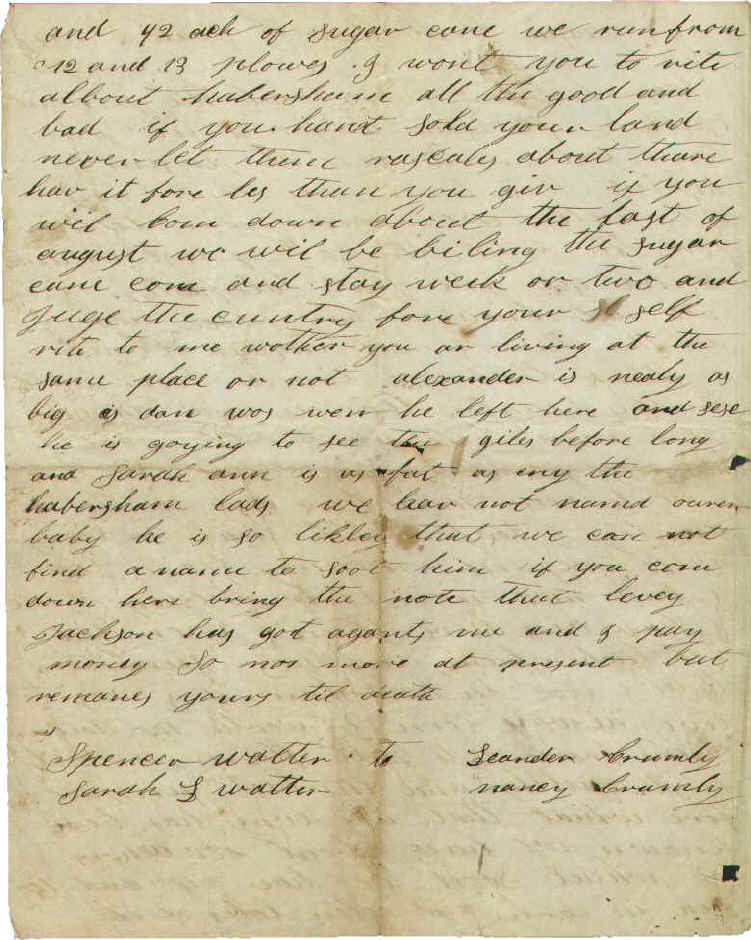 and 42 ack of sugar cane we run from
12 and 13 plowes I wont you to rite
allbout habersham all the good and
bad if you hant sold your land
never let them rascals about thare
hav it fore les than you giv if you
wil com down about the last of
august we wil be biling the sugar
cane com and stay week or two and
Juge the cuntry fore your self
rite to me wother you ar living at the
same place or not alexander is nealy as
big as dan was wen he left here and sese
he is goying to see the giles before long
and Sarah ann is as fat as eny the
habersham lads we hav not namd ouren
baby he is so likley that we can not
find a name to soot him if you com
down here bring the note that levey
Jackson has got agants me and I pay
money So nor more at present but
remanes yours til death
Spencer walter to Leander Crumly
Sarah L walter nancy Crumly